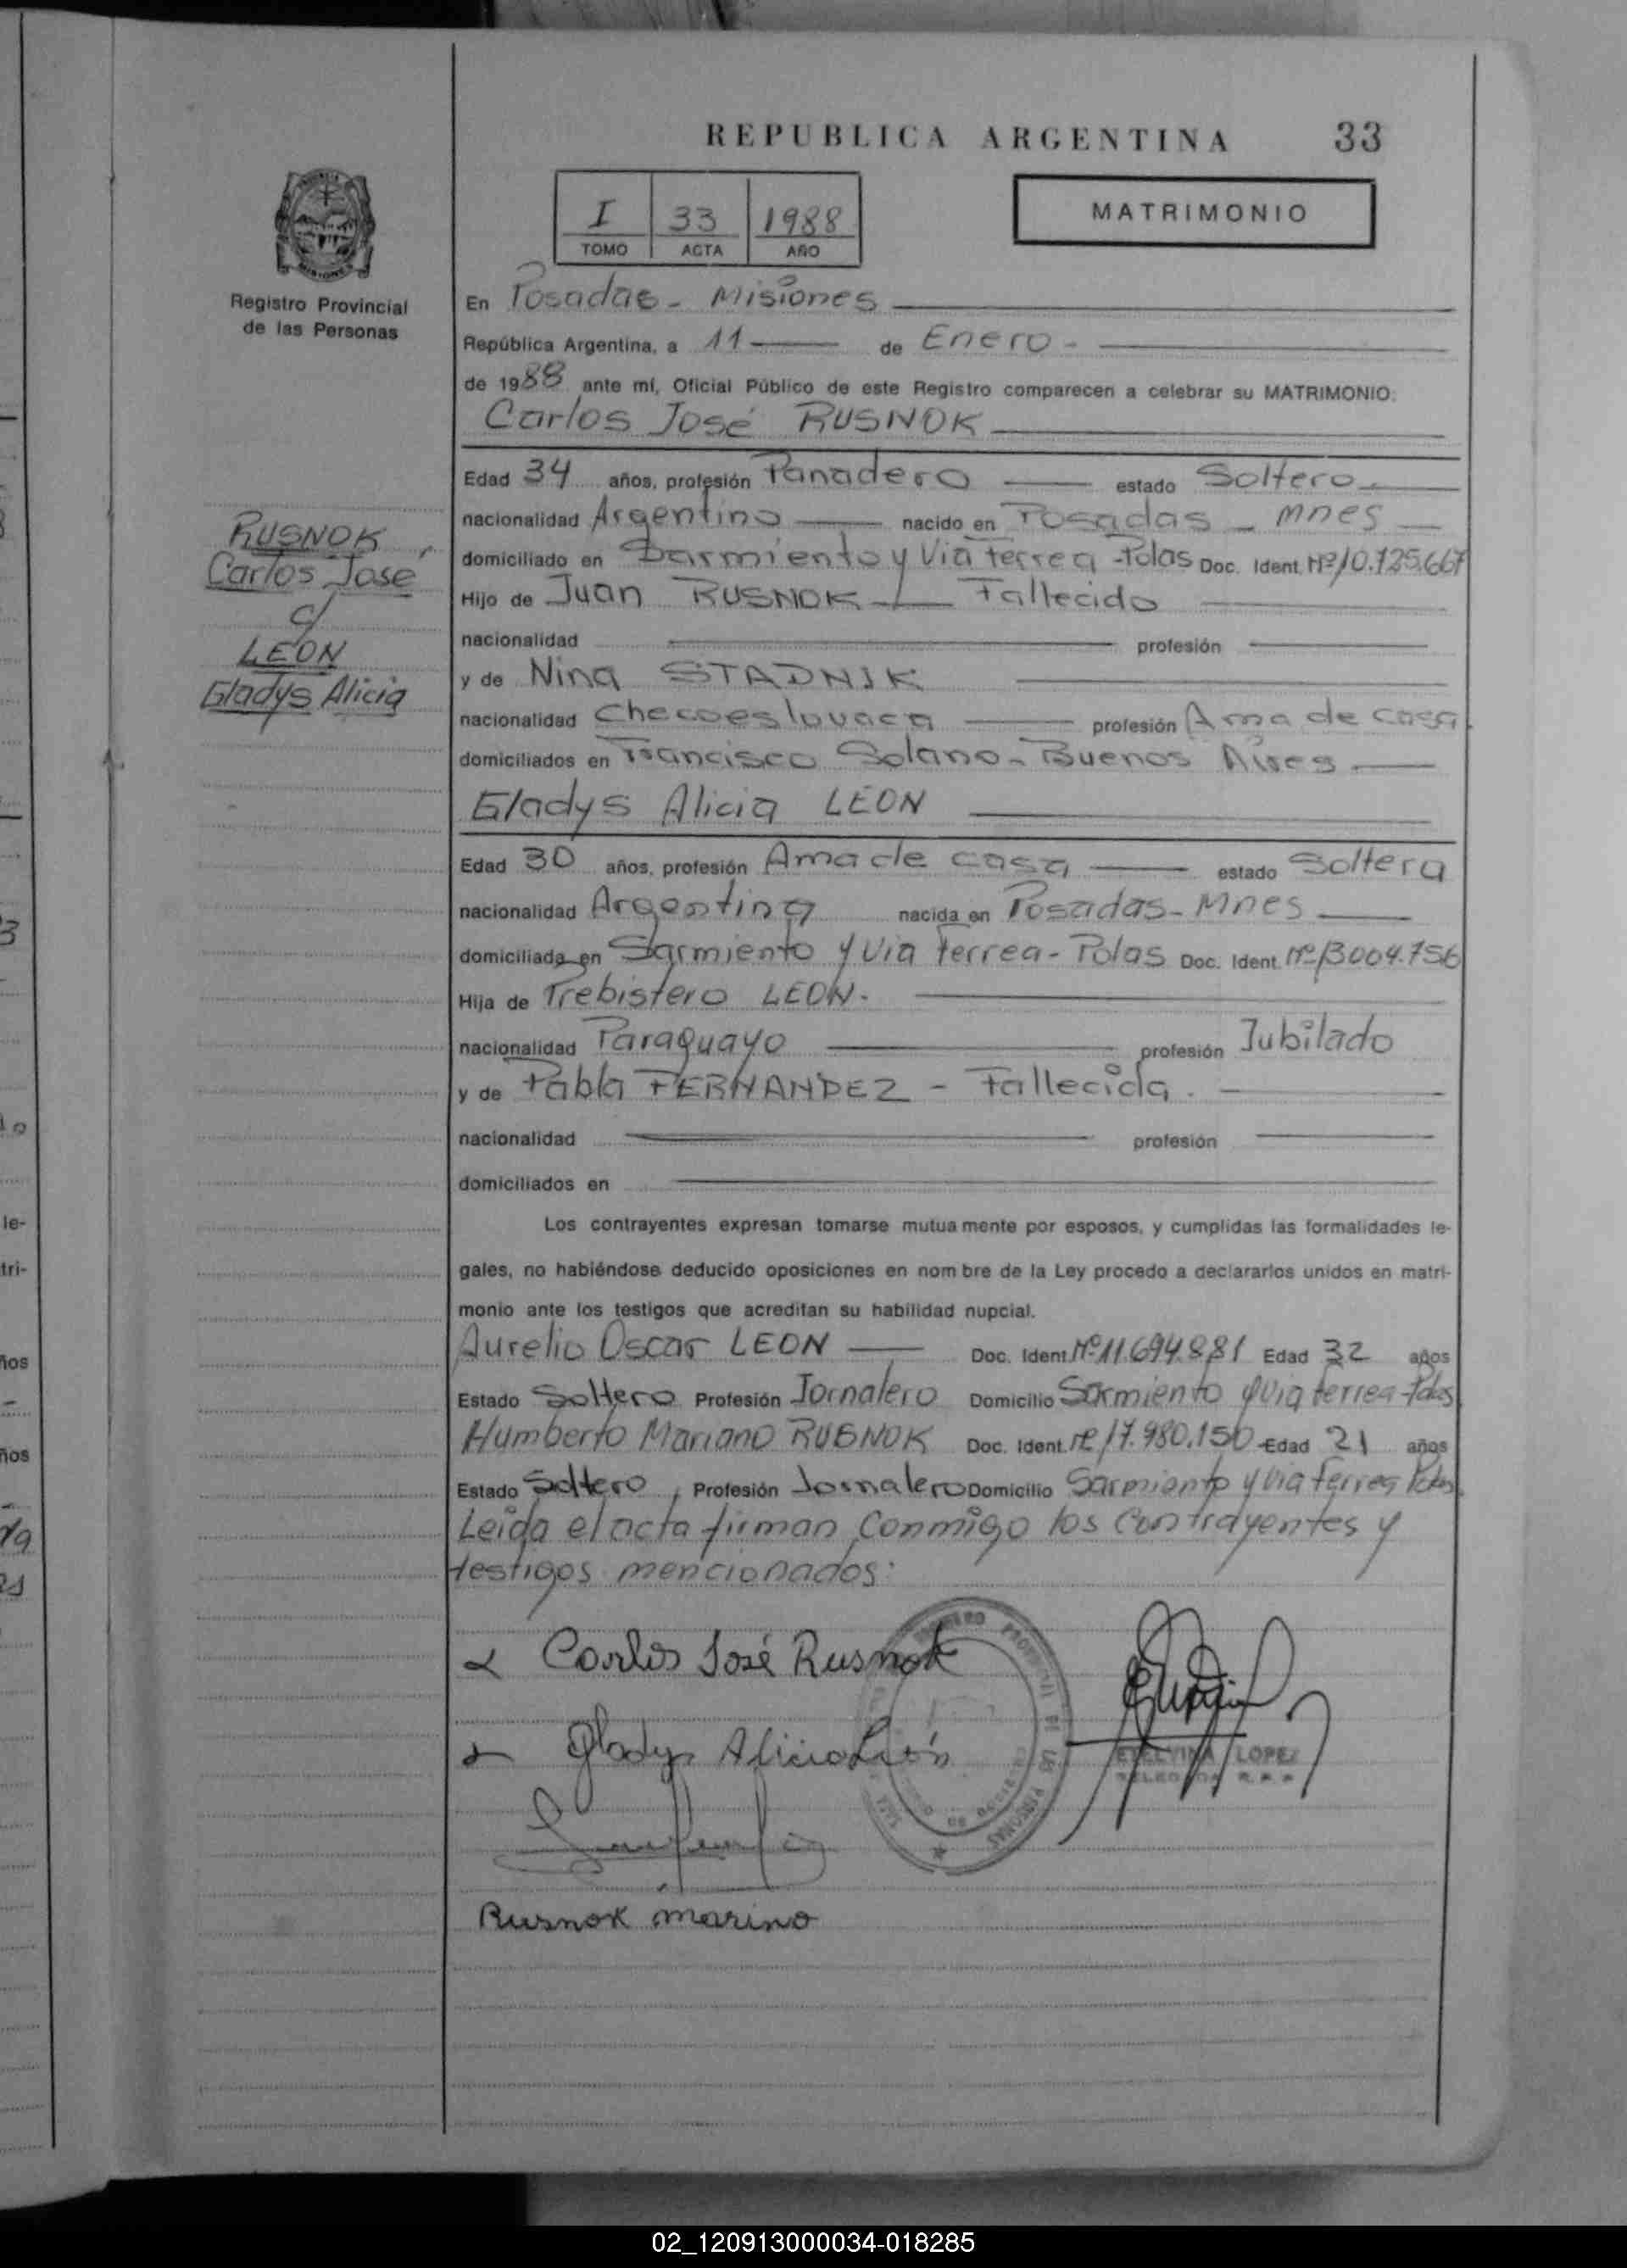 REPUBLICA ARGENTINA 33
I 33 1988
TOMO ACTA AÑO
MATRIMONIO
Registro Provincial
de las Personas
En Posadas - Misiones
República Argentina, a 11 de Enero -
de 1988 ante mí, Oficial Público de este Registro comparecen a celebrar su MATRIMONIO:
Carlos José RUSNOK
Edad 34 años, profesión Panadero estado Soltero
nacionalidad Argentino nacido en Posadas - Mnes
domiciliado en Sarmiento y Via ferrea - Pdas Doc. Ident. Nº 10.125.667
Hijo de Juan RUSNOK - Fallecido
nacionalidad profesión
y de Nina STADNIK
nacionalidad Checoeslovaca profesión Ama de casa
domiciliados en Francisco Solano - Buenos Aires
Gladys Alicia LEON
Edad 30 años, profesión Ama de casa estado Soltera
nacionalidad Argentina nacida en Posadas - Mnes
domiciliada en Sarmiento y Via ferrea - Pdas Doc. Ident. Nº 13004.756
Hija de Trebistero LEON.
nacionalidad Paraguayo profesión Jubilado
y de Pabla FERNANDEZ - Fallecida.
nacionalidad profesión
domiciliados en
Los contrayentes expresan tomarse mutuamente por esposos, y cumplidas las formalidades le-
gales, no habiéndose deducido oposiciones en nombre de la Ley procedo a declararlos unidos en matri-
monio ante los testigos que acreditan su habilidad nupcial.
Aurelio Oscar LEON Doc. Ident. Nº 11.694.881 Edad 32 años
Estado Soltero Profesión Jornalero Domicilio Sarmiento y via ferrea - Pdas
Humberto Mariano RUSNOK Doc. Ident. Nº 17.980.150 Edad 21 años
Estado Soltero Profesión Jornalero Domicilio Sarmiento y via Ferrea Pdas
Leida el acta firman conmigo los contrayentes y
testigos mencionados:
Carlos José Rusnok
Gladys Alicia León
ETELVINA LOPEZ
Rusnok marino
RUSNOK
Carlos José
c/
LEON
Gladys Alicia
02_120913000034-018285